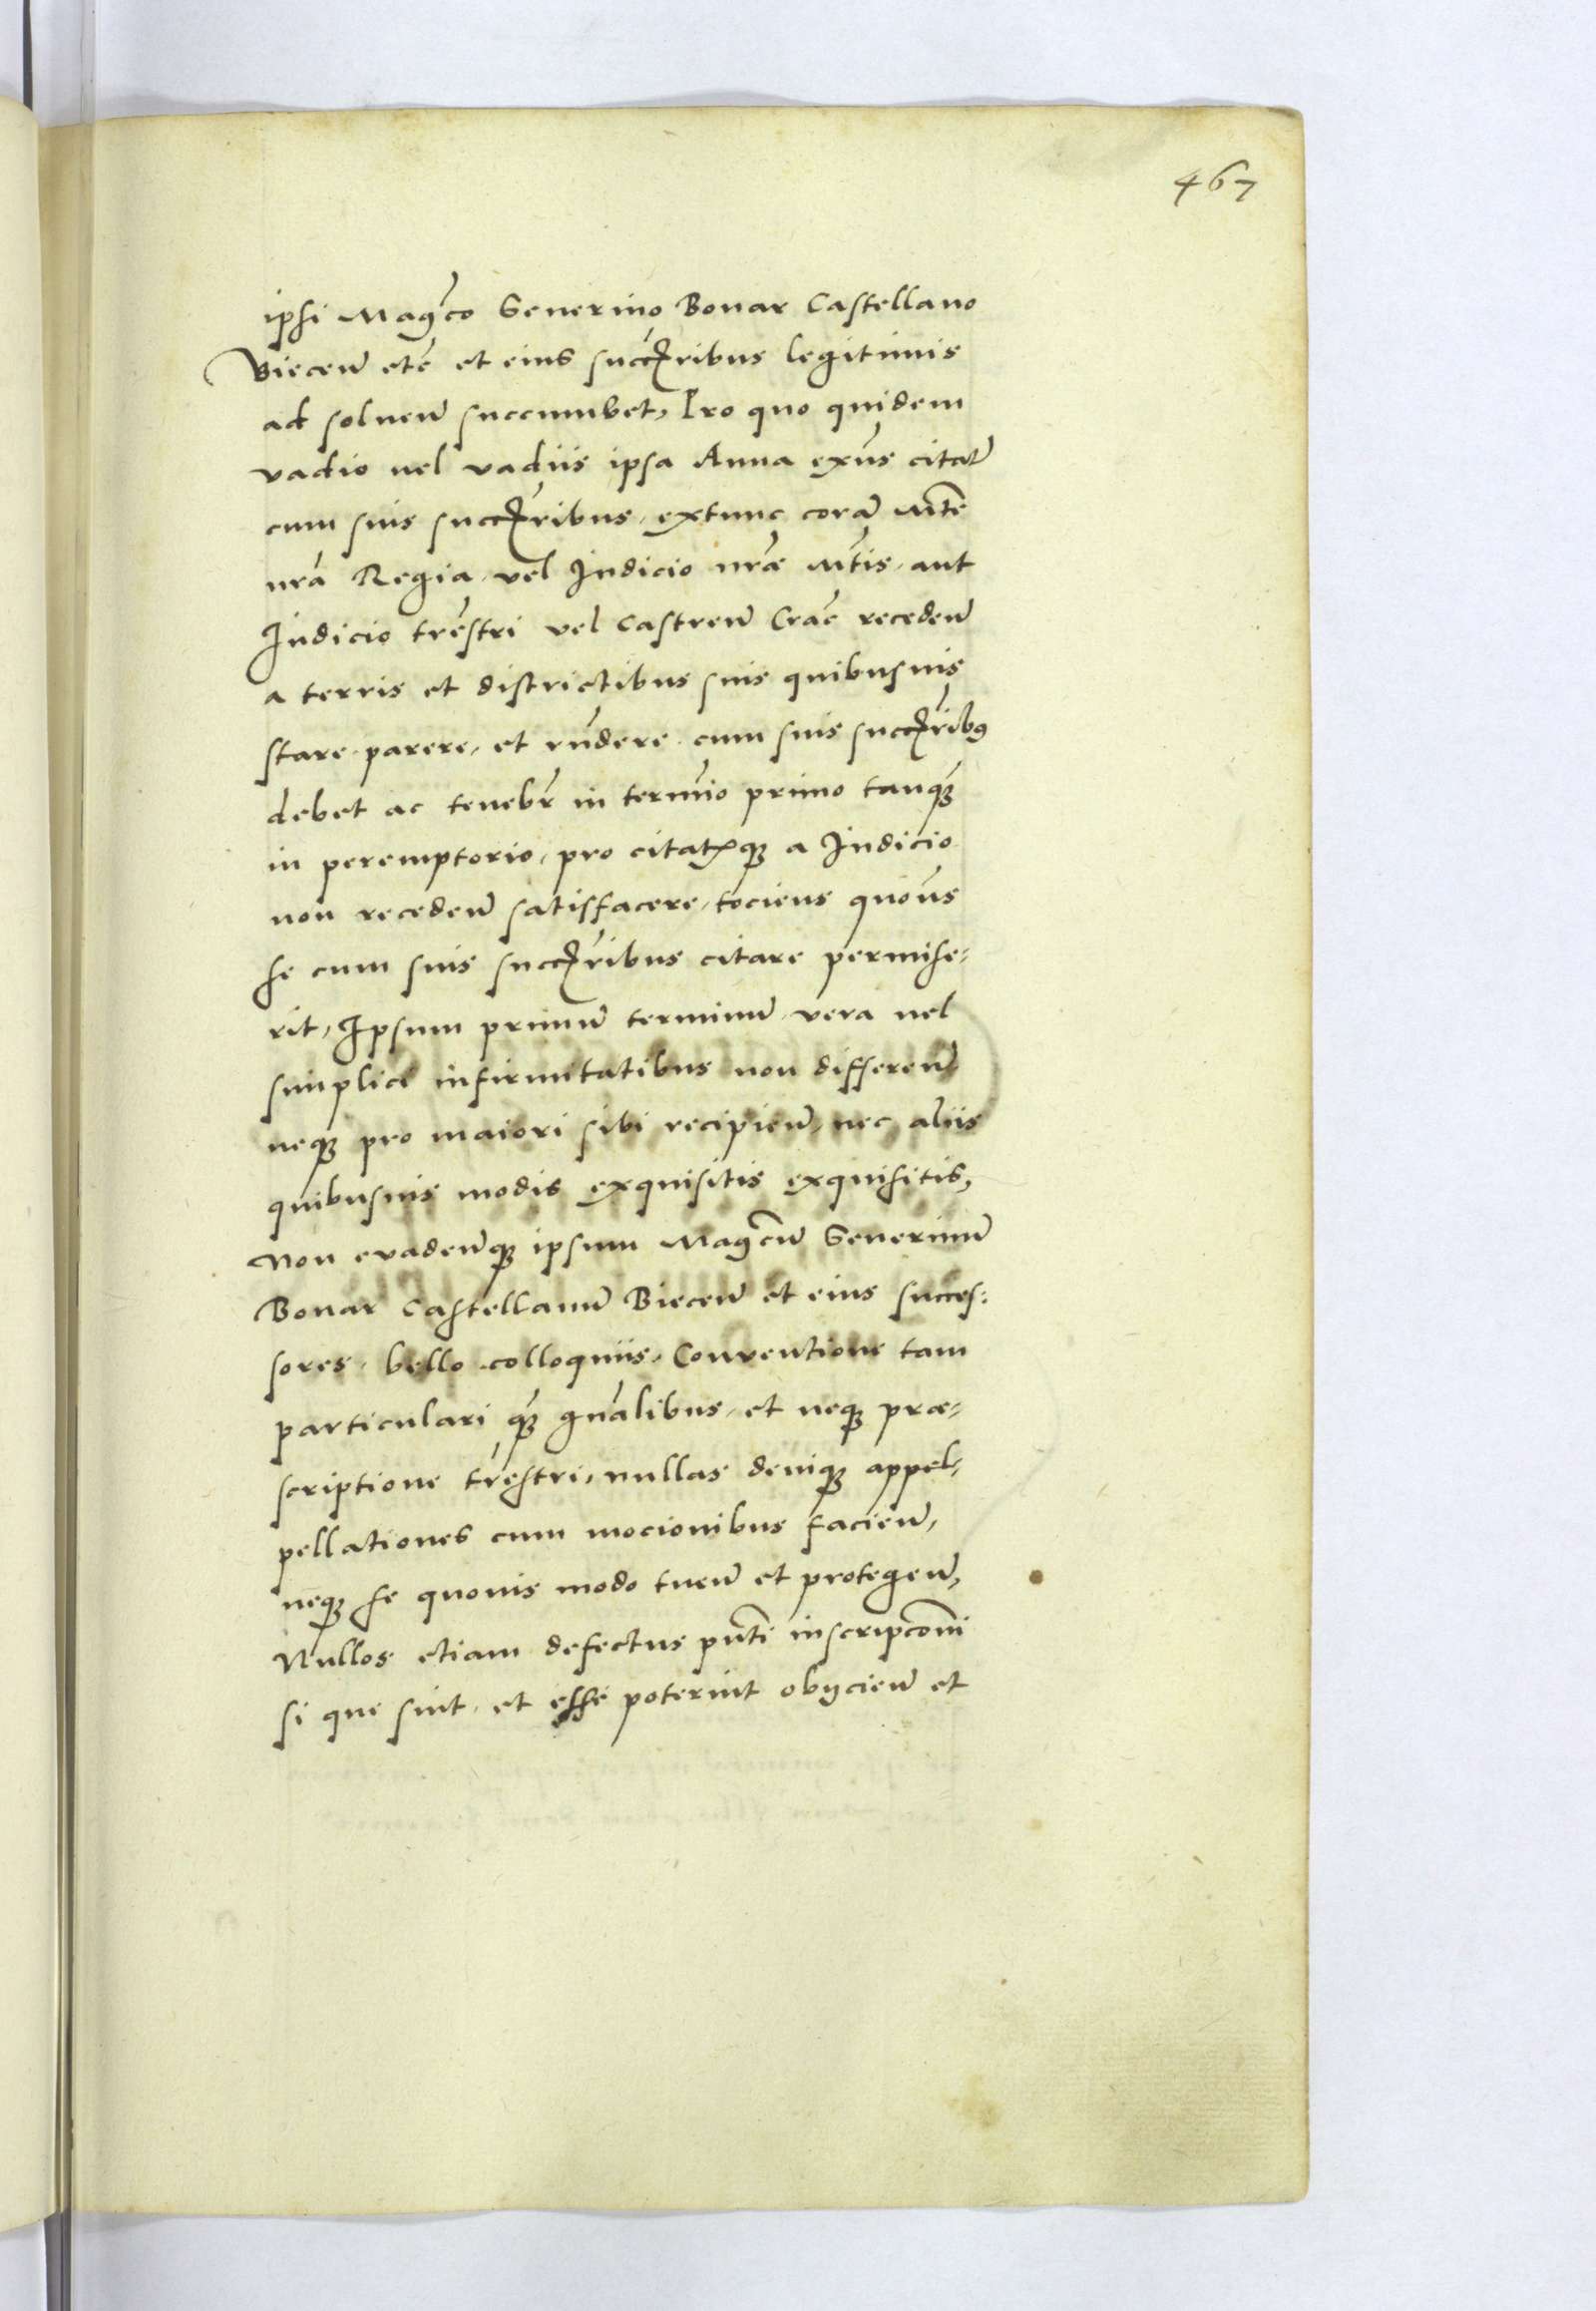 467
ipsi Magco Seuerino Bonar Castellano
Biecen̄ etc̄ et eius succr̄ibus legitimis
ad soluen̄ succumbet, Pro quo quidem
vadio uel vadiis ipsa Anna exn̄s citat̄
cum suis succr̄ibus, extunc corā Mte
nrā Regia, vel Iudicio nrae Mtis, aut
Iudicio trēstri vel Castren̄ Crac̄ receden̄
a terris et districtibus suis quibusuis
stare parere, et rn̄dere cum suis succr̄ibꝰ
debet ac tenebr̄ in termīo primo tanqꝫ
in peremptorio, pro citatꝫqꝫ a Iudicio
non receden̄ satisfacere, tociens quotn̄s
se cum suis succr̄ibus citare permise-
rit, Ipsum primū terminū vera uel
simplici infirmitatibus non differen̄
neqꝫ pro maiori sibi recipien̄, nec aliis
quibusuis modis exquisitis exquisitis,
Non evaden̄qꝫ ipsum Magcū Seuerinū
Bonar Castellanū Biecen̄ et eius succes:
sores, bello colloquiis, Conventione tam
particulari qꝫ gn̄alibus, et neqꝫ prae-
scriptione trēstri, nullas deniqꝫ appel-
pellationes cum mocionibus facien̄,
neqꝫ se quouis modo tuen̄ et protegen̄,
Nullos etiam defectus pn̄ti inscripcōni
si que sint, et esse poterint obijcien̄ et